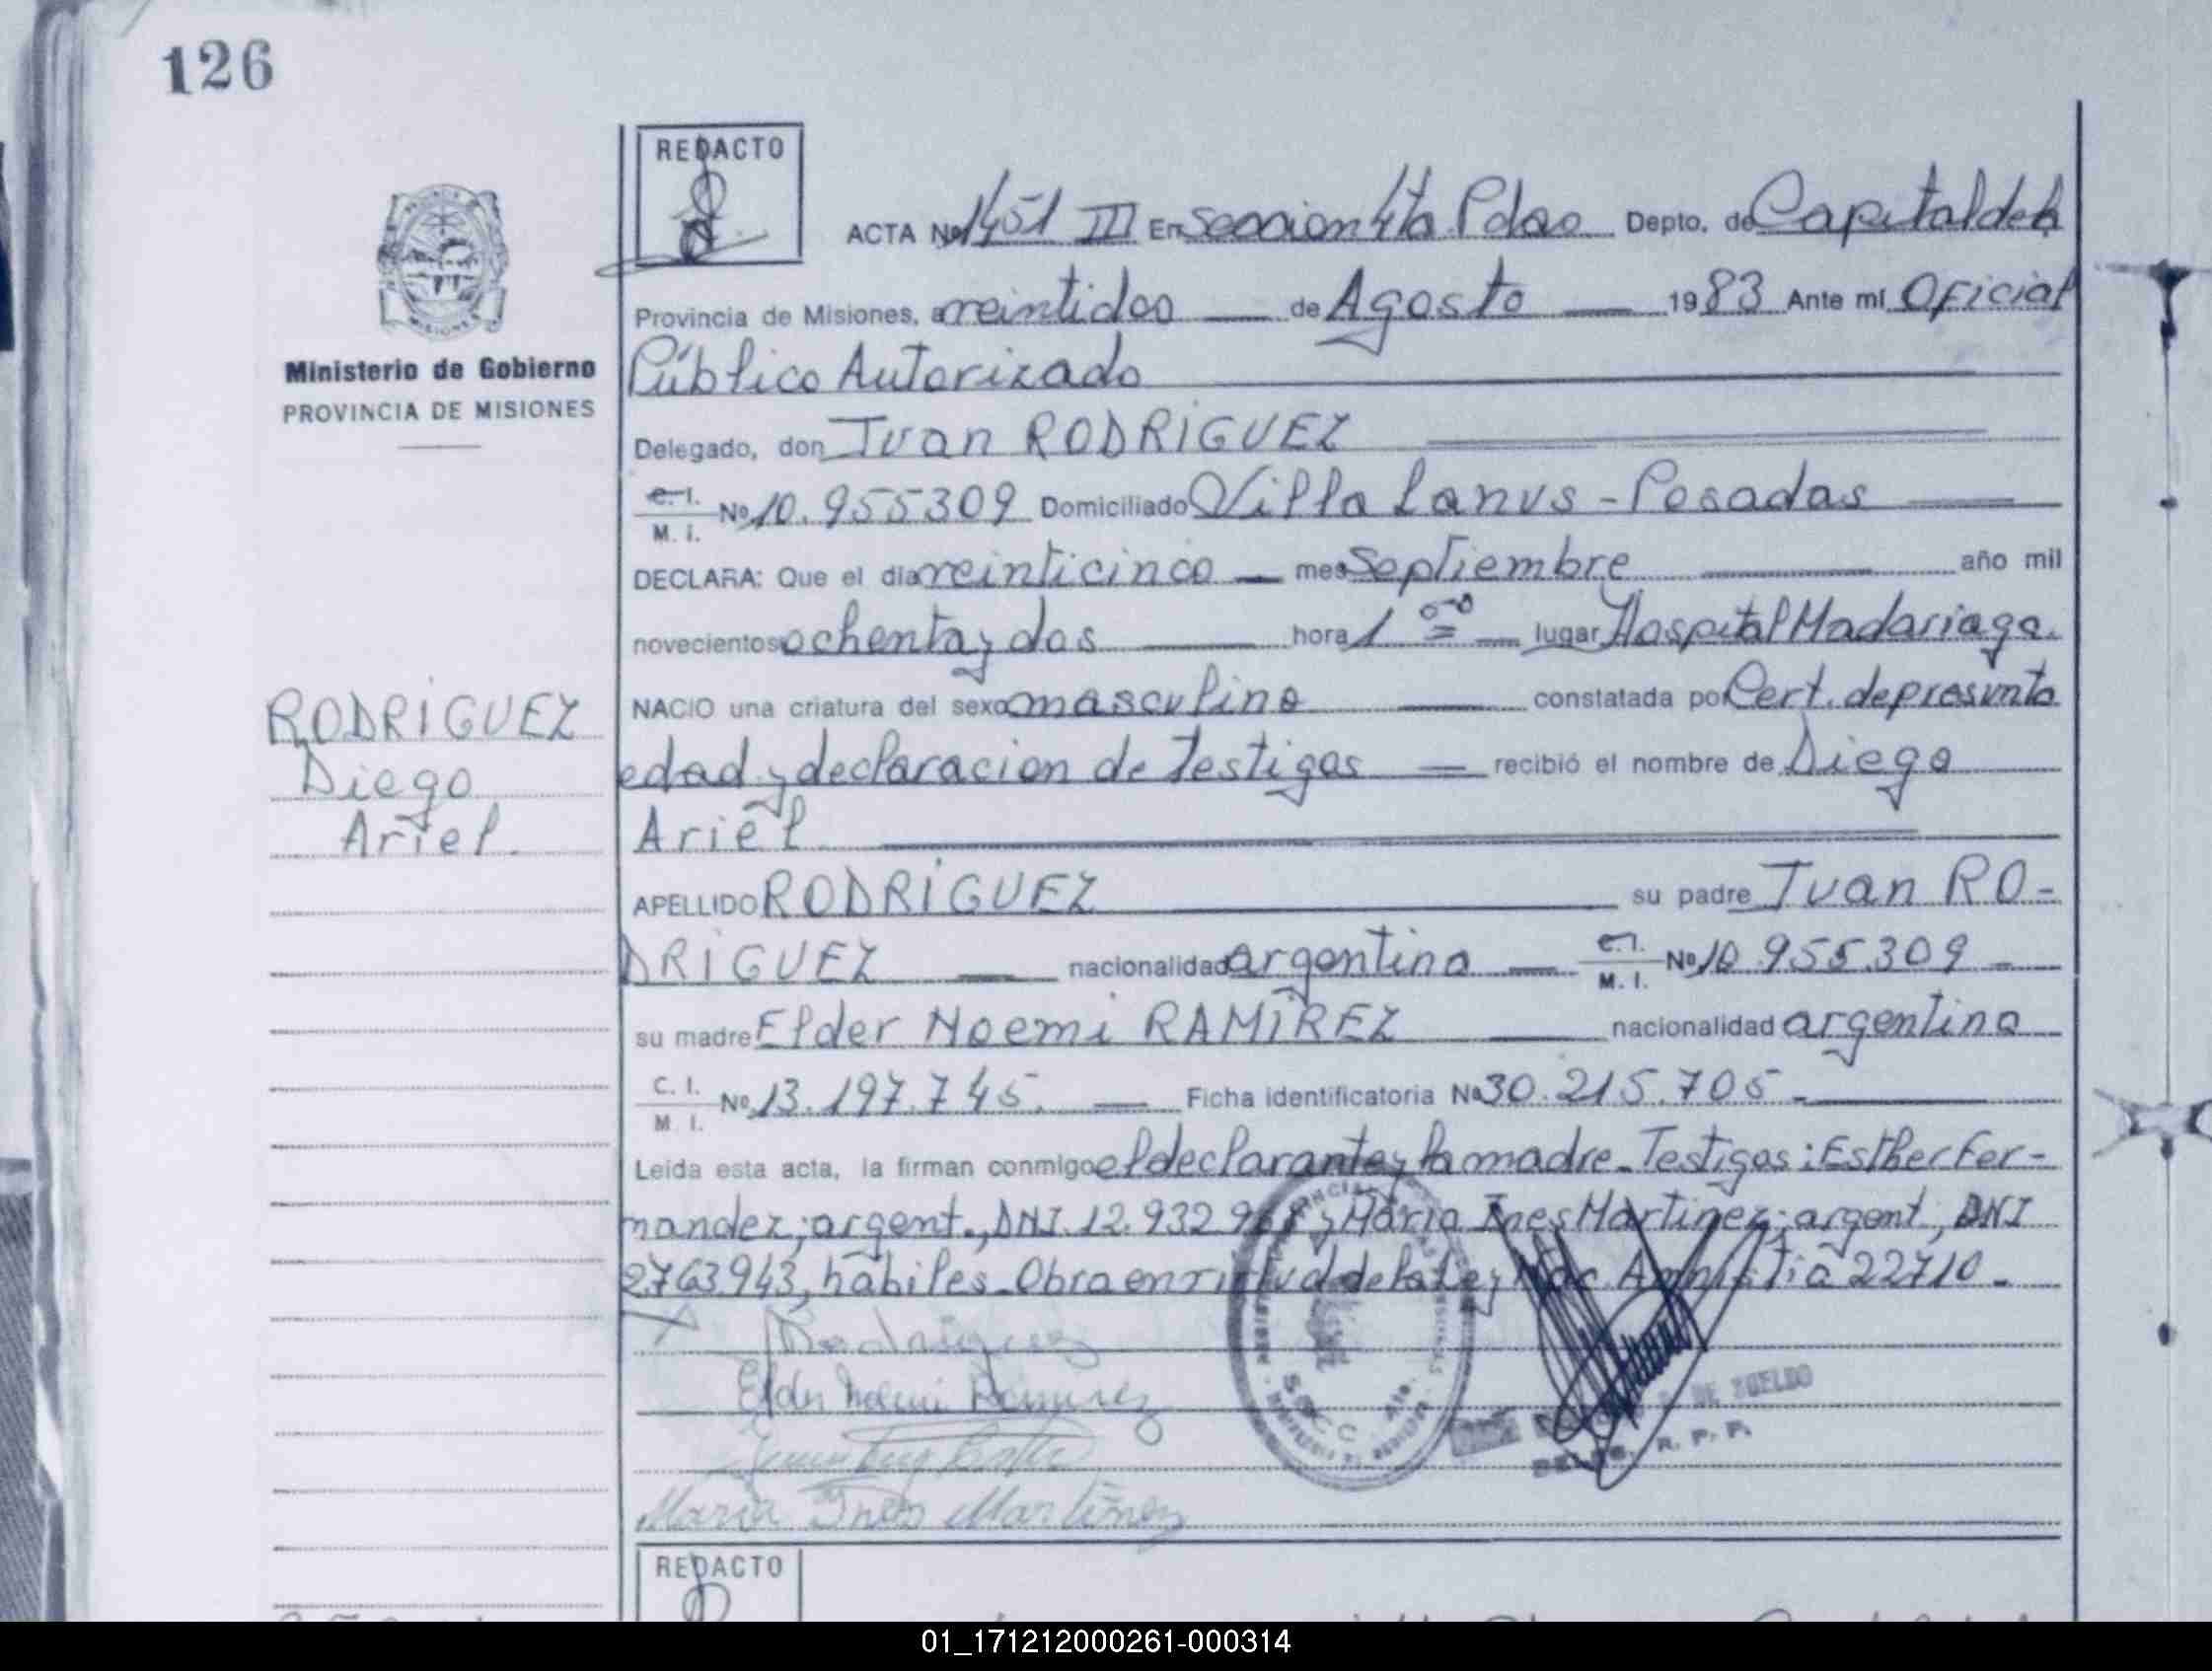 126
REDACTO
ACTA Nº 1451 III En Seccion 4ta Pdas Depto. de Capital de la
Provincia de Misiones, a veintidos de Agosto 1983 Ante mí Oficial
Ministerio de Gobierno
PROVINCIA DE MISIONES
Público Autorizado
Delegado, don Juan RODRIGUEZ
C. I. M. I. Nº 10.955309 Domiciliado Villa Lanus - Posadas
DECLARA: Que el día veinticinco mes Septiembre año mil
novecientos ochenta y dos hora 1 00 lugar Hospital Madariaga.
NACIO una criatura del sexo masculino constatada por Cert. de presunta
edad y declaracion de Testigos recibió el nombre de Diego
Ariel
RODRIGUEZ
Diego
Ariel.
APELLIDO RODRIGUEZ su padre Juan RO-
DRIGUEZ nacionalidad argentino C. I. M. I. Nº 10.955.309
su madre Elder Noemi RAMIREZ nacionalidad argentina
C. I. M. I. Nº 13.197.745. Ficha identificatoria Nº 30.215.705.
Leída esta acta, la firman conmigo el declarante y la madre_Testigos: Esther Fer-
nandez; argent., DNI. 12.932 y Maria Ines Martinez; argent, DNI
2763943, hábiles_Obra en virtud de la Ley Nac. Amnistia 22710.
Rodriguez
Elder Noemi Ramirez
Maria Ines Martinez
SECC 4ta.
DE SUELDO
R. P. P.
REDACTO
01_171212000261-000314